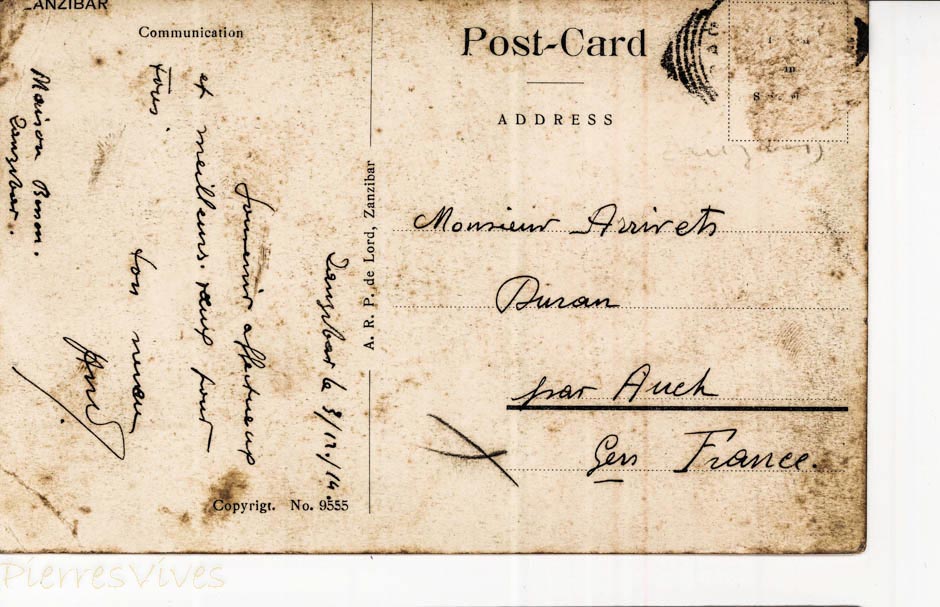 ZANZIBAR
Communication
Post-Card
ADDRESS
A. R. P. de Lord, Zanzibar
Copyrigt. No. 9555
Zanzibar le 3/12/14.
Souvenir affectueux
et meilleurs vœux pour
tous.
ton neveu
Maison
Zanzibar.
Monsieur Arrivets
Duran
par Auch
Gers France.
PierresVives